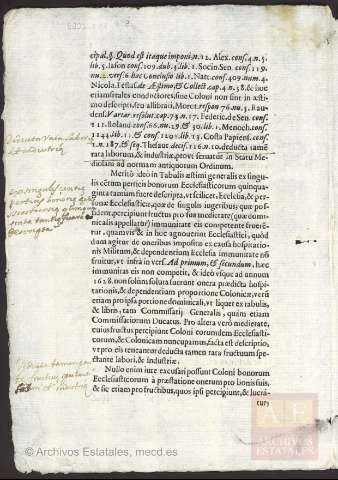 cipal. §. Quod est itaque imponi n. 12. Alex. cons. 4. n. 5.
lib. 5. Iason cons. 109. dub. 4. lib. 1. Socin. Sen. cons. 119.
nu. 2. vers. 6 hac Conclusio lib. 1. Natt. cons. 409. num. 4.
Nicola. Festas. de Æstimo & Collect. cap. 4. n. 58. & hoc
etiamsi tales conductores, siue Coloni non sint in æsti-
mo descripti, seu allibrati, Moret. respon 76. nu. 5. Rau-
dens. Variar resolut. cap. 73. n. 17. Federic. de Sen. cons.
211. Roland cons. 66. nu. 29. & 30. lib. 1. Menoch. cons.
1144. lib. 11. & cons. 1295. nu. 73. Costa Papiens. cons.
1. n. 187. & seq. Thesaur. deci 116. n. 20. deducta tamẽ
rata laborum, & industriæ, prout firmatur in Statu Me-
diolani ad normam antiquorum Ordinum.
Meritò ideò in Tabulis æstimi generalis ex singu-
lis cẽtum perticis bonorum Ecclesiasticorum quinqua-
ginta tantum fuere descripta, vt scilicet, Ecclesia, & per-
sonæ Ecclesiasticæ, quæ de singulis iugeribus, quæ pos-
sident, percipiunt fructus pro sua medietate (quæ domi-
calis appellatur) immunitate eis competente frueren-
tur, quamuis & in hoc agnouerint Ecclesiastici, quòd
dum agitur de oneribus impositis ex causa hospitatio-
nis Militum, & dependentium Ecclesia immunitate nõ
fruitur, vt infra in vers. Ad primum, & secundum, hæc
immunitas eis non competit, & ideò vsque ad annum
1628. non solùm soluta fuerunt onera prædicta hospita-
tionis, & dependentium proportione Colonicæ, verũ
etiam pro ipsa portione dominicali, vt liquet ex tabulis,
& libris, tam Commissarij Generalis, quàm etiam
Commissariorum Ducatus. Pro altera verò medietate,
cuius fructus percipiunt Coloni eorumdem Ecclesiasti-
corum, & Colonicam nuncupamus, facta est descriptio,
vt pro eis teneantur deducta tamen rata fructuum spe-
ctante labori, & industriæ.
Nullo enim iure excusari possunt Coloni bonorum
Ecclesiasticorum à præstatione onerum pro bonis suis,
& sic etiam pro fructibus, quos ipsi percipiunt, & lucrã-
tur,
AE
ARCHIVOS
ESTATALES
© Archivos Estatales, mecd.es